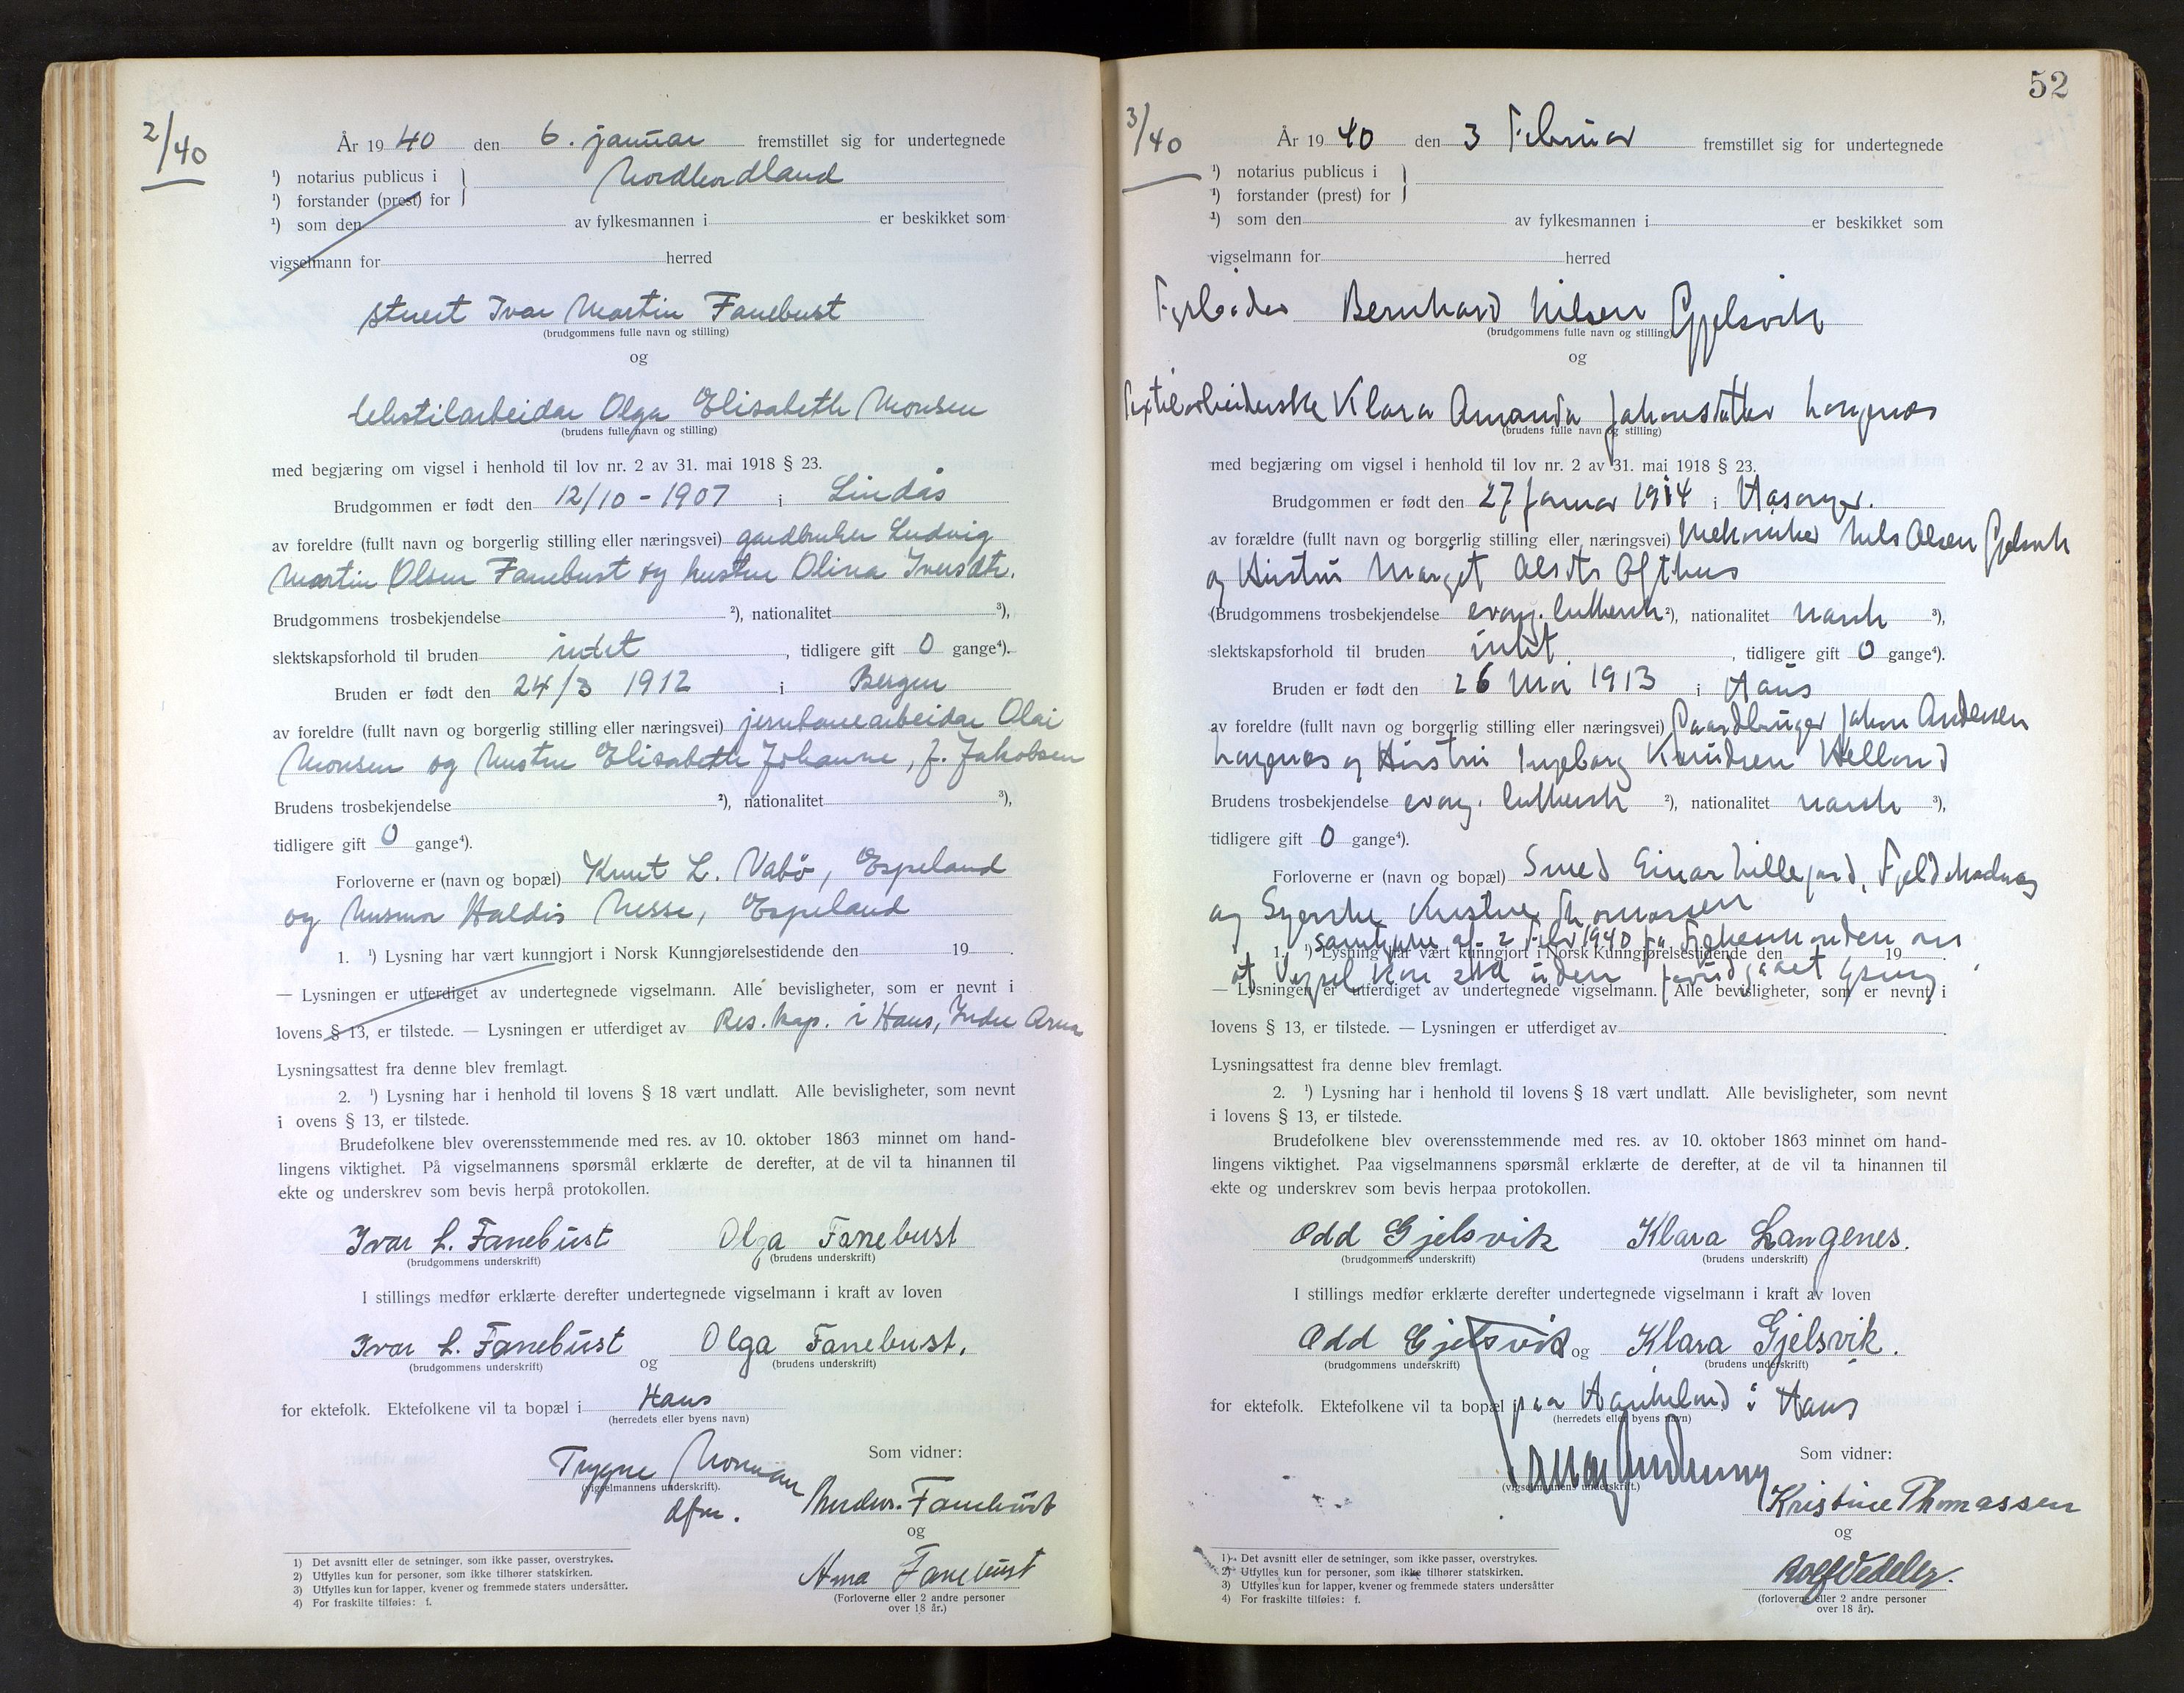 2/40
År 1940 den 6. januar fremstillet sig for undertegnede
¹) notarius publicus i
Nordhordland
¹) forstander (prest) for
¹) som den av fylkesmannen i er beskikket som
vigselmann for herred
stuert Ivar Martin Fanebust
(brudgommens fulle navn og stilling)
og
tekstilarbeidar Olga Elisabeth Monsen
(brudens fulle navn og stilling)
med begjæring om vigsel i henhold til lov nr. 2 av 31. mai 1918 § 23.
Brudgommen er født den 12/10 - 1907 i Lindås
av foreldre (fullt navn og borgerlig stilling eller næringsvei) gardbruker Ludvig
Martin Olsen Fanebust og hustru Olina Iversdtr.
Brudgommens trosbekjendelse ²), nationalitet ³),
slektskapsforhold til bruden intet, tidligere gift 0 gange⁴).
Bruden er født den 24/3 1912 i Bergen
av foreldre (fullt navn og borgerlig stilling eller næringsvei) jernbanearbeidar Olai
Monsen og hustru Elisabeth Johanne, f. Jakobsen
Brudens trosbekjendelse ²), nationalitet ³),
tidligere gift 0 gange⁴).
Forloverne er (navn og bopæl) Knut L. Vabø, Espeland
og husmor Haldis Nesse, Espeland
1. ¹) Lysning har vært kunngjort i Norsk Kunngjørelsestidende den 19 .
— Lysningen er utferdiget av undertegnede vigselmann. Alle bevisligheter, som er nevnt i
lovens § 13, er tilstede. — Lysningen er utferdiget av Res. kap. i Haus, Indre Arna
Lysningsattest fra denne blev fremlagt.
2. ¹) Lysning har i henhold til lovens § 18 vært undlatt. Alle bevisligheter, som nevnt
i ovens § 13, er tilstede.
Brudefolkene blev overensstemmende med res. av 10. oktober 1863 minnet om hand-
lingens viktighet. På vigselmannens spørsmål erklærte de derefter, at de vil ta hinannen til
ekte og underskrev som bevis herpå protokollen.
Ivar L. Fanebust Olga Fanebust
(brudgommens underskrift) (brudens underskrift)
I stillings medfør erklærte derefter undertegnede vigselmann i kraft av loven
Ivar L. Fanebust og Olga Fanebust.
(brudgommens underskrift) (brudens underskrift)
for ektefolk. Ektefolkene vil ta bopæl i Haus
(herredets eller byens navn)
Som vidner:
Trygve Norman
(vigselmannens underskrift).
Fanebust
og
Anna Fanebust
(Forloverne eller 2 andre personer
over 18 år.)
1) Det avsnitt eller de setninger, som ikke passer, overstrykes.
2) Utfylles kun for personer, som ikke tilhører statskirken.
3) Utfylles kun for lapper, kvener og fremmede staters undersåtter.
4) For fraskilte tilføies: f.
52
3/40
År 1940 den 3 Februar fremstillet sig for undertegnede
¹) notarius publicus i
¹) forstander (prest) for
¹) som den av fylkesmannen i er beskikket som
vigselmann for herred
Bernhard Nilsen Gjelsvik
(brudgommens fulle navn og stilling)
og
Textilarbeiderske Klara Amanda Johansdatter Langenes
(brudens fulle navn og stilling)
med begjæring om vigsel i henhold til lov nr. 2 av 31. mai 1918 § 23.
Brudgommen er født den 27 januar 1914 i
av forældre (fullt navn og borgerlig stilling eller næringsvei) Mekaniker Nils Olsen Gjelsvik
og Hustru Margit
(Brudgommens trosbekjendelse evang. luthersk ²), nationalitet norsk ³),
slektskapsforhold til bruden intet, tidligere gift 0 gange⁴).
Bruden er født den 26 Mai 1913 i Haus
av foreldre (fullt navn og borgerlig stilling eller næringsvei) Gaardbruger Johan Andersen
Langenes og Hustru Ingeborg Knudsen Helland
Brudens trosbekjendelse evang. luthersk ²), nationalitet norsk ³),
tidligere gift 0 gange⁴).
Forloverne er (navn og bopæl) Smed Einar
og Syerske Kristine Thomassen
samtykke af 2 Febr 1940 fra Fylkesmanden om
1. ¹) Lysning har vært kunngjort i Norsk Kunngjørelsestidende den 19 .
at Vigsel kan uden forudgaaet lysning
— Lysningen er utferdiget av undertegnede vigselmann. Alle bevisligheter, som er nevnt i
lovens § 13, er tilstede. — Lysningen er utferdiget av
Lysningsattest fra denne blev fremlagt.
2. ¹) Lysning har i henhold til lovens § 18 vært undlatt. Alle bevisligheter, som nevnt
i lovens § 13, er tilstede.
Brudefolkene blev overensstemmende med res. av 10. oktober 1863 minnet om hand-
lingens viktighet. Paa vigselmannens spørsmål erklærte de derefter, at de vil ta hinannen til
ekte og underskrev som bevis herpaa protokollen.
Odd Gjelsvik Klara Langenes.
(brudgommens underskrift) (brudens underskrift)
I stillings medfør erklærte derefter undertegnede vigselmann i kraft av loven
Odd Gjelsvik og Klara Gjelsvik.
(brudgommens underskrift) (brudens underskrift)
for ektefolk. Ektefolkene vil ta bopæl i paa Haukeland i Haus
(herredets eller byens navn)
Som vidner:
(vigselmannens underskrift.)
Kristine Thomassen
og
(forloverne eller 2 andre personer
over 18 år).
1) Det avsnitt eller de setninger, som ikke passer, overstrykes.
2) Utfylles kun for personer, som ikke tilhører statskirken.
3) Utfylles kun for lapper, kvener og fremmede staters undersåtter
4) For fraskilte tilføies: f.